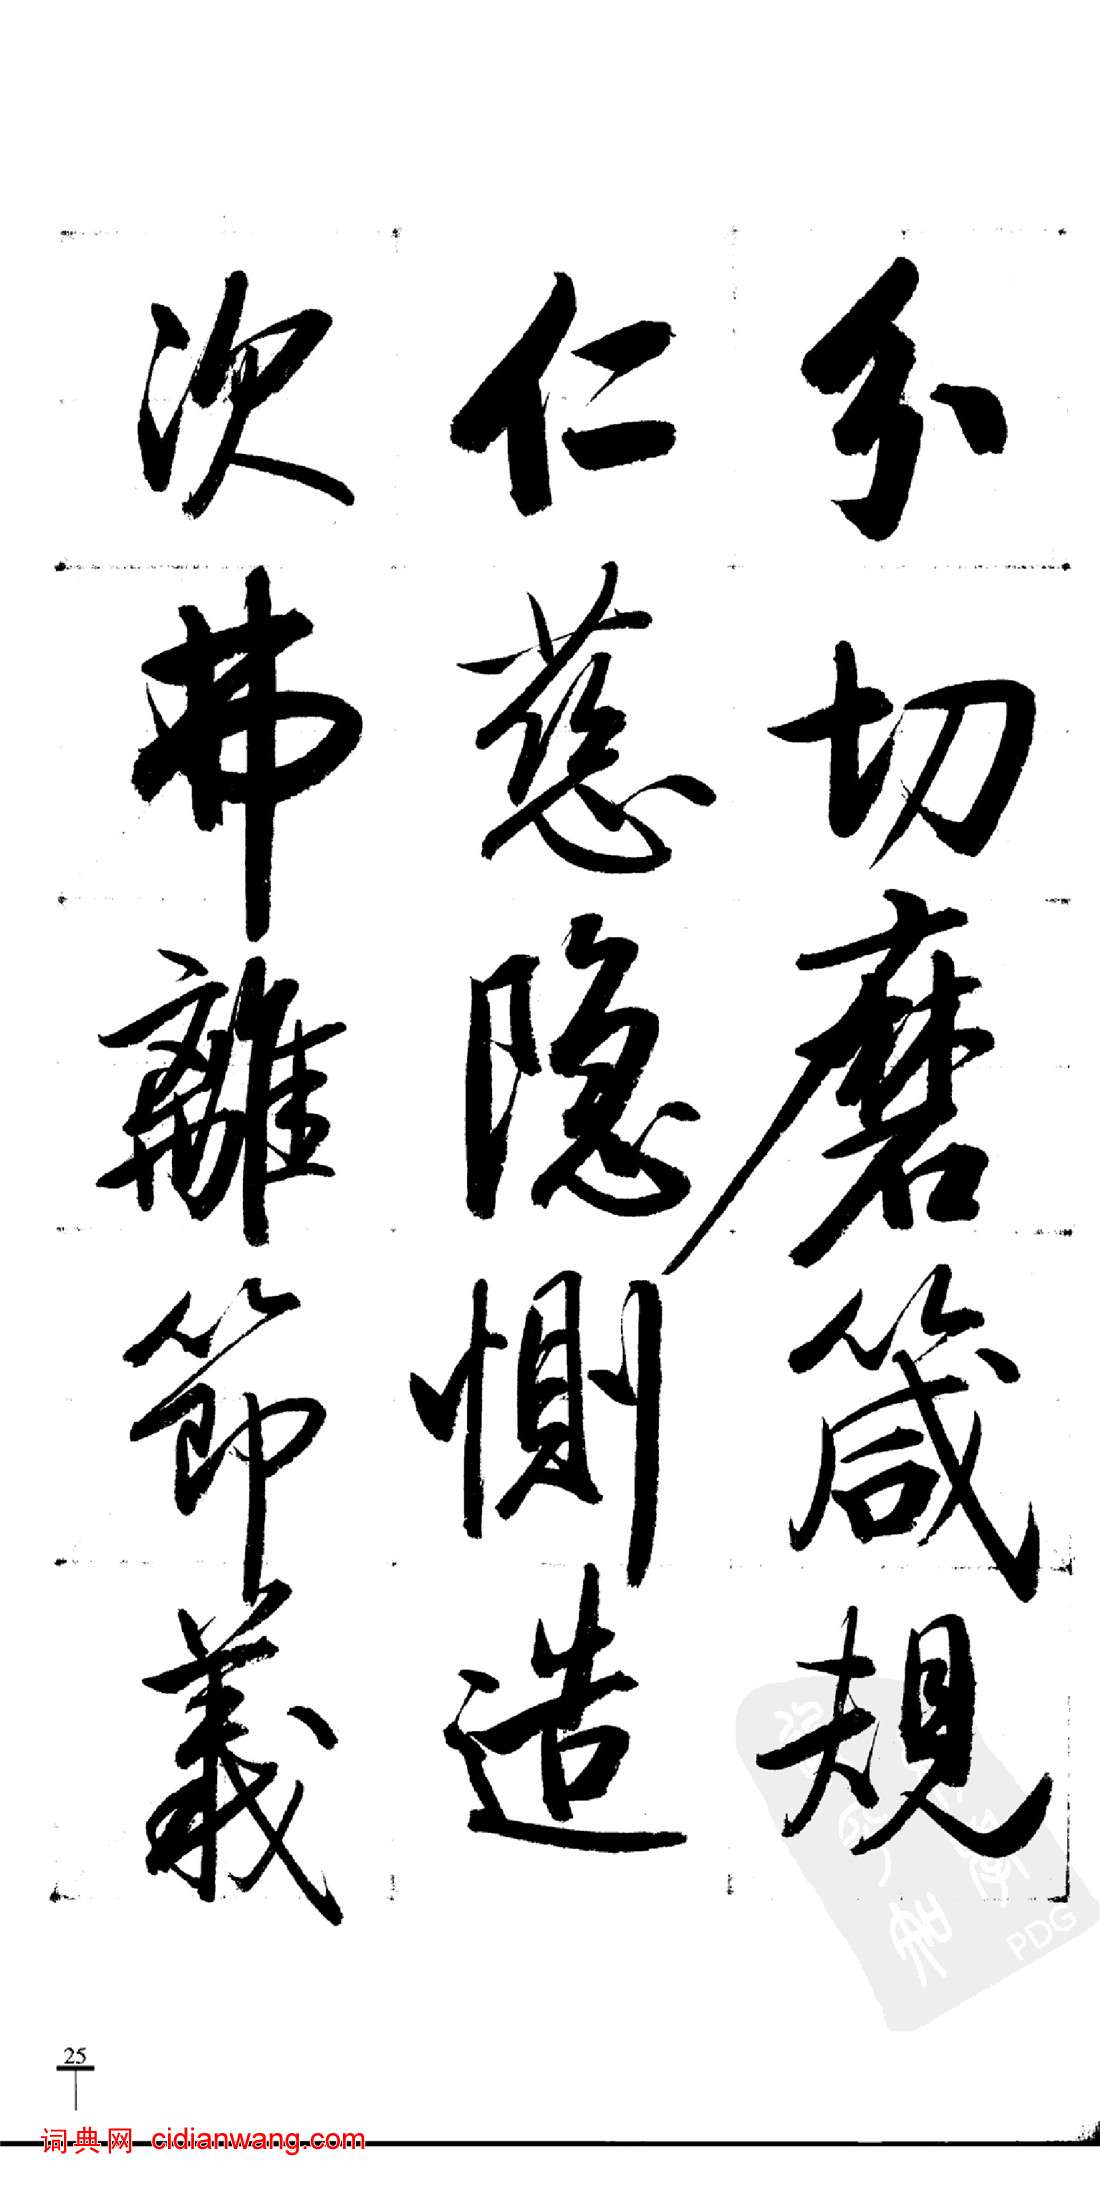 分切磨箴規
仁慈隱惻造
次弗離節義
25
词典网 cidianwang.com
PDG